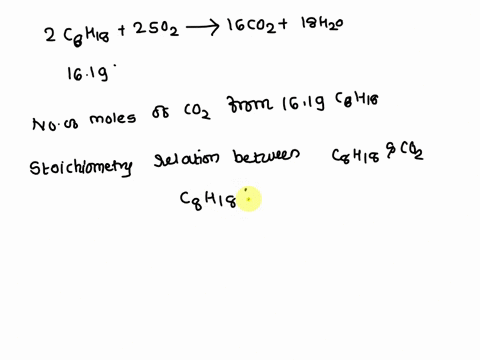 2 C8H18 + 25O2 → 16CO2 + 18H2O
16.1g
No. of moles of CO2 from 16.1g C8H18
Stoichiometry relation between C8H18 & CO2
C8H18 :